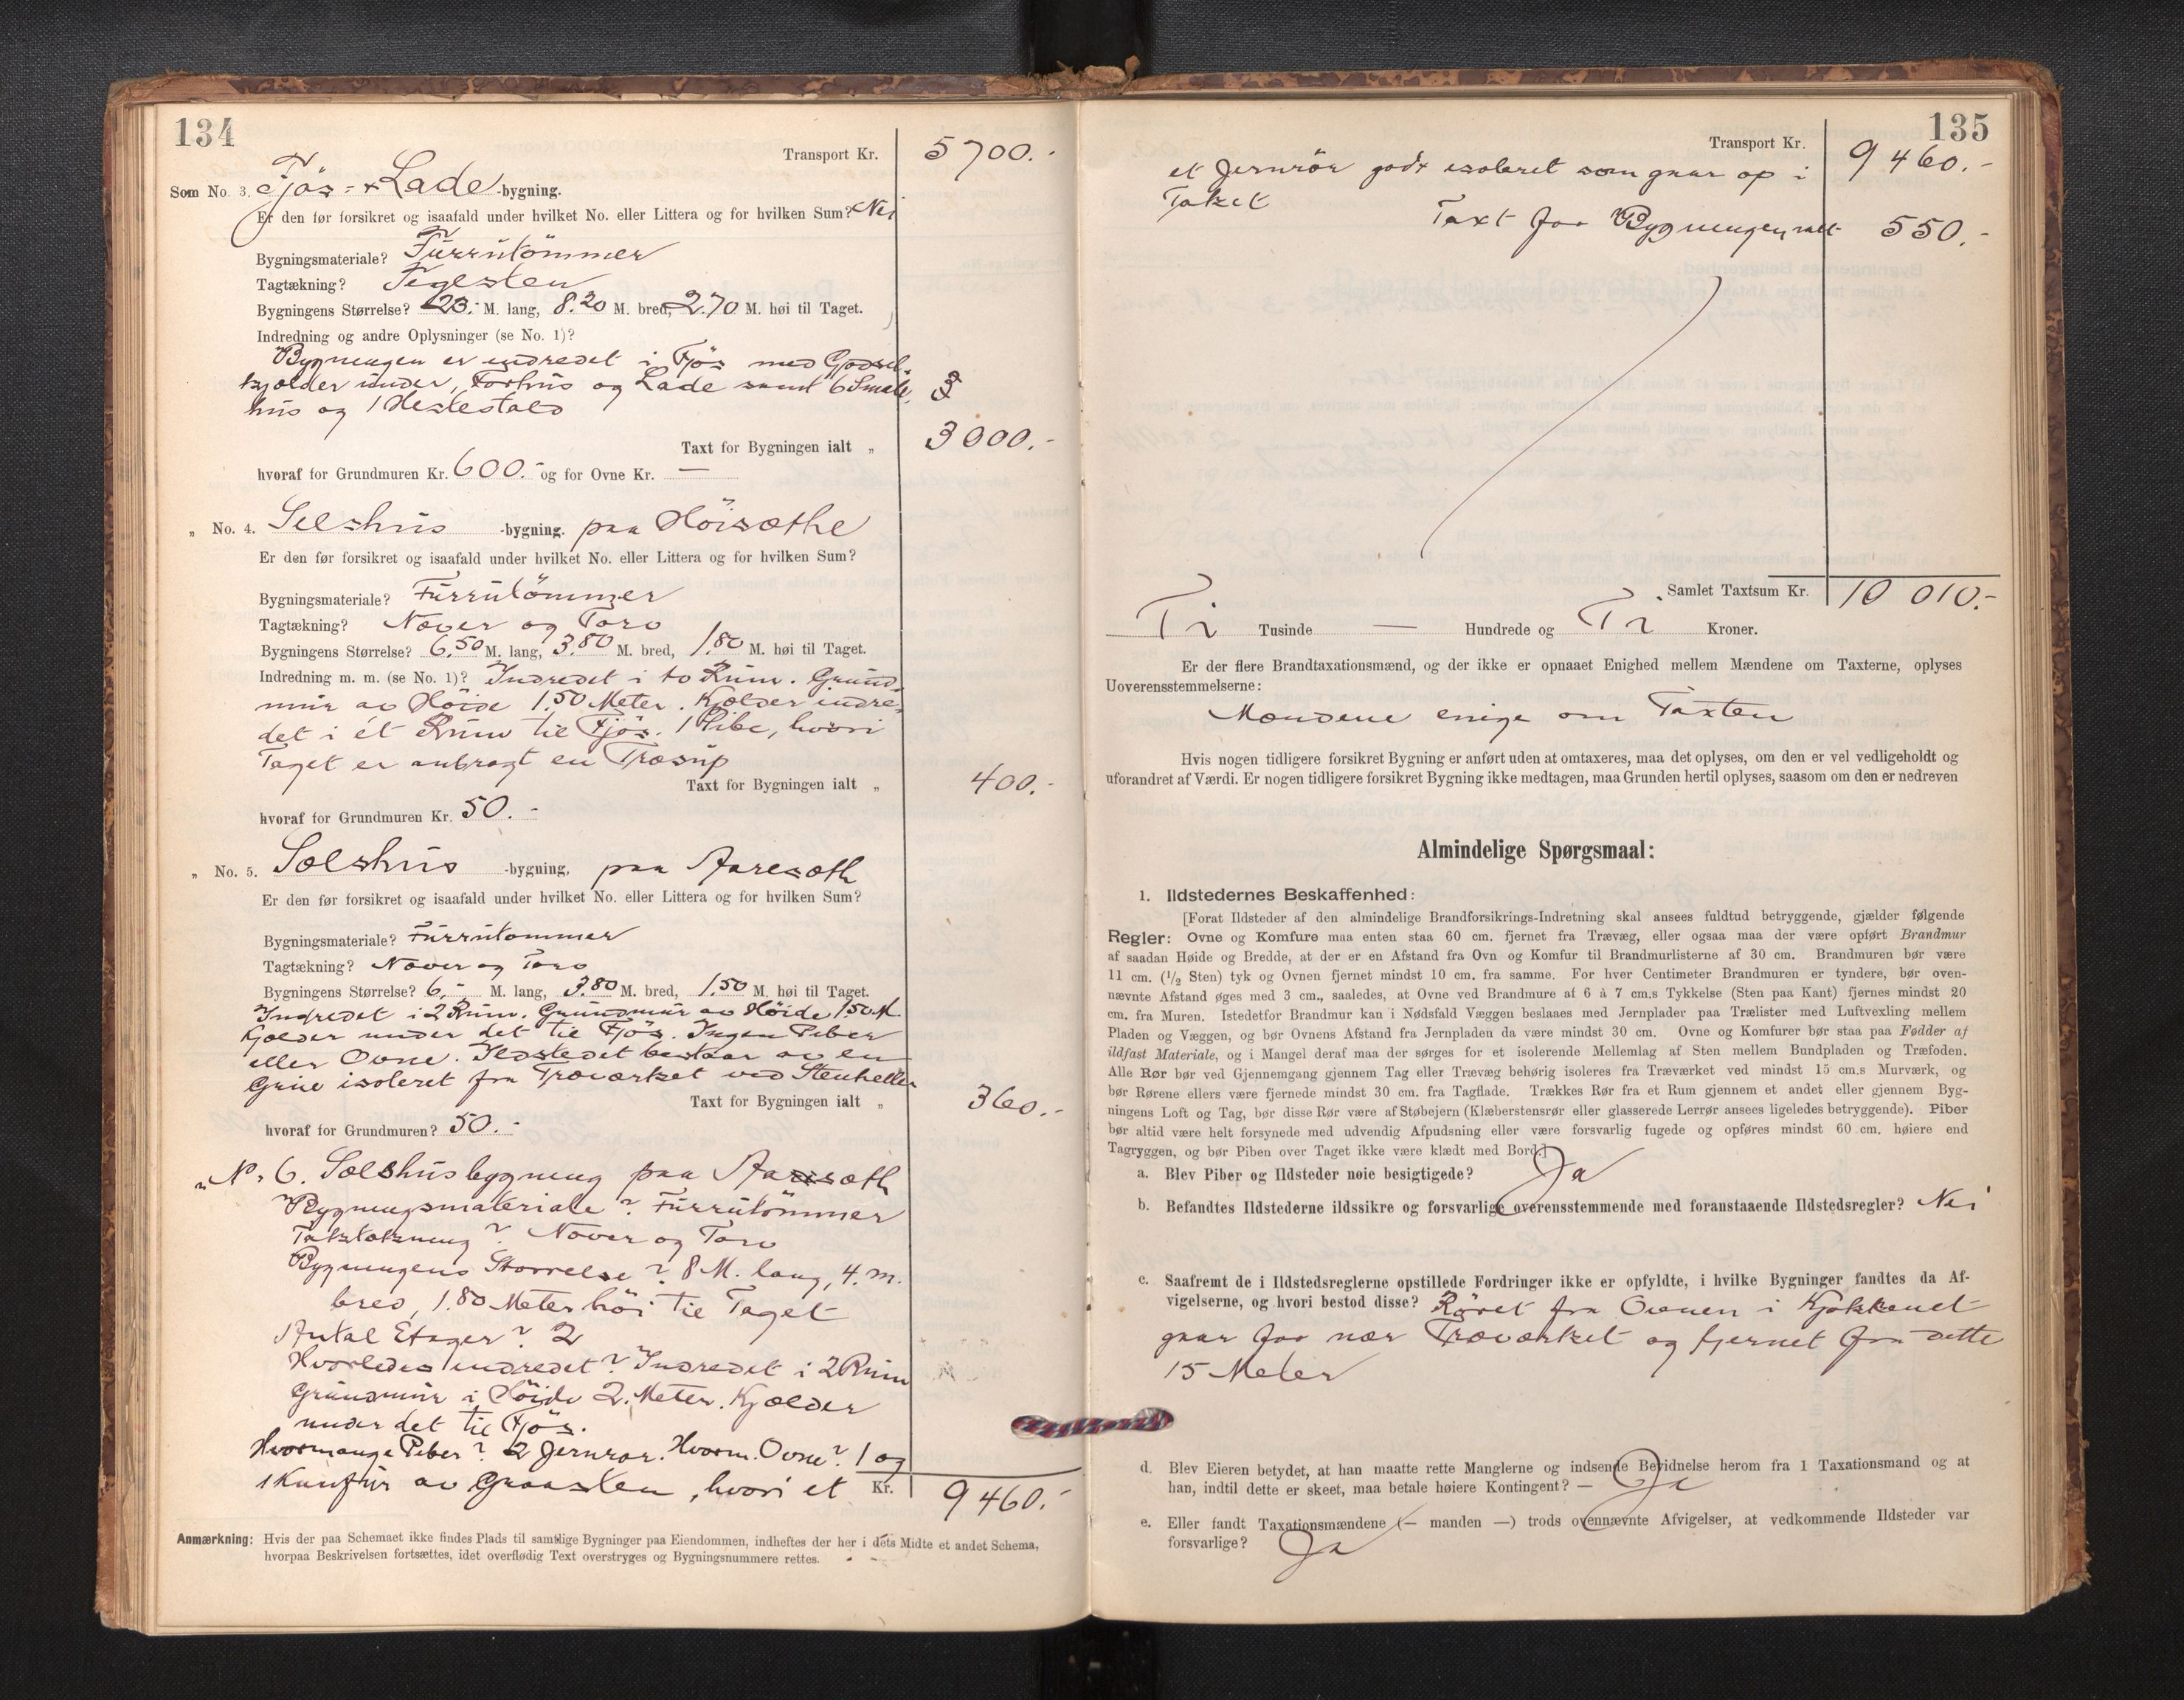 134
Transport Kr. 5700.-
Som No. 3. Fjös- & Lade -bygning.
Er den før forsikret og isaafald under hvilket No. eller Littera og for hvilken Sum? Nei
Bygningsmateriale? Furrutömmer
Tagtækning? Teglsten
Bygningens Størrelse? 23.- M. lang, 8.20 M. bred, 2.70 M. høi til Taget.
Indredning og andre Oplysninger (se No. 1)?
Bygningen er indredet i Fjös med Gjødsel-
kjælder under, Forhus og Lade samt 6 Smale-
hus og 1 Hestestald
Taxt for Bygningen ialt „ 3000.-
hvoraf for Grundmuren Kr. 600.- og for Ovne Kr. —
„ No. 4. Selshus -bygning. paa Höisæthe
Er den før forsikret og isaafald under hvilket No. eller Littera og for hvilken Sum?
Bygningsmateriale? Furrutömmer
Tagtækning? Næver og Torv
Bygningens Størrelse? 6.50 M. lang, 3.80 M. bred, 1.80 M. høi til Taget.
Indredning m. m. (se No. 1)? Indredet i to Rum. Grund-
mur av Höide 1.50 Meter. Kjælder indre-
det i ét Rum til Fjös. 1 Pibe, hvori
Taget er anbragt en
Taxt for Bygningen ialt „ 400.-
hvoraf for Grundmuren Kr. 50.-
„ No. 5. Sælshus -bygning, paa Aaresæth
Er den før forsikret og isaafald under hvilket No. eller Littera og for hvilken Sum?
Bygningsmateriale? Furrutømmer
Tagtækning? Næver og Torv
Bygningens Størrelse? 6.- M. lang, 3.80 M. bred, 1.50 M. høi til Taget.
Indredet i 2 Rum. Grundmur av Höide 1.50 M.
Kjælder under det til Fjös. Ingen Piber
eller Ovne. Ildstedet bestaar av en
Grue isoleret fra Træværket ved Stenheller
Taxt for Bygningen ialt „ 360.-
hvoraf for Grundmuren? 50.-
„ No. 6. Sælshusbygning paa Aaresæth
Bygningsmateriale? Furrutömmer
Taktækning? Næver og Torv
Bygningens Størrelse? 8 M. lang, 4. m.
bred, 1.80 Meter höi til Taget
Antal Etager? 2
Hvorledes indredet? Indredet i 2 Rum
Grundmur i Höide 2. Meter. Kjælder
under det til Fjös.
Hvormange Piber? 2 Jernrør. Hvorm. Ovne? 1 og
1 Kunfur av Graasten, hvori et Kr. 9460.-
Anmærkning: Hvis der paa Schemaet ikke findes Plads til samtlige Bygninger paa Eiendommen, indheftes der her i dets Midte et andet Schema,
hvorpaa Beskrivelsen fortsættes, idet overflødig Text overstryges og Bygningsnummere rettes.
135
Transport Kr. 9460.-
et Jernrör godt isoleret som gaar op i
Taket
Taxt for Bygningen ialt 550.-
Samlet Taxtsum Kr. 10 010.-
Ti Tusinde — Hundrede og Ti Kroner.
Er der flere Brandtaxationsmænd, og der ikke er opnaaet Enighed mellem Mændene om Taxterne, oplyses
Uoverensstemmelserne:
Mændene enige om Taxten
Hvis nogen tidligere forsikret Bygning er anført uden at omtaxeres, maa det oplyses, om den er vel vedligeholdt og
uforandret af Værdi. Er nogen tidligere forsikret Bygning ikke medtagen, maa Grunden hertil oplyses, saasom om den er nedreven
Almindelige Spørgsmaal:
1. Ildstedernes Beskaffenhed:
[Forat Ildsteder af den almindelige Brandforsikrings-Indretning skal ansees fuldtud betryggende, gjælder følgende
Regler: Ovne og Komfure maa enten staa 60 cm. fjernet fra Trævæg, eller ogsaa maa der være opført Brandmur
af saadan Høide og Bredde, at der er en Afstand fra Ovn og Komfur til Brandmurlisterne af 30 cm. Brandmuren bør være
11 cm. (1/2 Sten) tyk og Ovnen fjernet mindst 10 cm. fra samme. For hver Centimeter Brandmuren er tyndere, bør oven-
nævnte Afstand øges med 3 cm., saaledes, at Ovne ved Brandmure af 6 à 7 cm.s Tykkelse (Sten paa Kant) fjernes mindst 20
cm. fra Muren. Istedetfor Brandmur kan i Nødsfald Væggen beslaaes med Jernplader paa Trælister med Luftvexling mellem
Pladen og Væggen, og bør Ovnens Afstand fra Jernpladen da være mindst 30 cm. Ovne og Komfurer bør staa paa Fødder af
ildfast Materiale, og i Mangel deraf maa der sørges for et isolerende Mellemlag af Sten mellem Bundpladen og Træfoden.
Alle Rør bør ved Gjennemgang gjennem Tag eller Trævæg behørig isoleres fra Træværket ved mindst 15 cm.s Murværk, og
bør Rørene ellers være fjernede mindst 30 cm. fra Tagflade. Trækkes Rør fra et Rum gjennem et andet eller gjennem Byg-
ningens Loft og Tag, bør disse Rør være af Støbejern (Klæberstensrør eller glasserede Lerrør ansees ligeledes betryggende). Piber
bør altid være helt forsynede med udvendig Afpudsning eller være forsvarlig fugede og opføres mindst 60 cm. høiere end
Tagryggen, og bør Piben over Taget ikke være klædt med Bord.]
a. Blev Piber og Ildsteder nøie besigtigede? Ja
b. Befandtes Ildstederne ildssikre og forsvarlige overensstemmende med foranstaaende Ildstedsregler? Nei
c. Saafremt de i Ildstedsreglerne opstillede Fordringer ikke er opfyldte, i hvilke Bygninger fandtes da Af-
vigelserne, og hvori bestod disse? Röret fra Ovnen i Kjøkkenet
gaar for nær Træværket og fjernet fra dette
15 Meter
d. Blev Eieren betydet, at han maatte rette Manglerne og indsende Bevidnelse herom fra 1 Taxationsmand og at
han, indtil dette er skeet, maa betale høiere Kontingent? — Ja
e. Eller fandt Taxationsmændene (— manden —) trods ovennævnte Afvigelser, at vedkommende Ildsteder var
forsvarlige? Ja